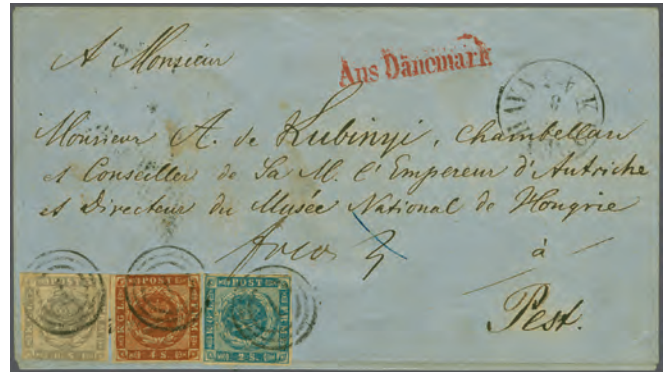 A Monsieur
Aus Dänemark
Monsieur A. de Kubinyi, Chambellan
et Conseiller de Sa M. l'Empereur d'Autriche
et Directeur du Musée National de Hongrie
à
Pest.
POST
KGL
FRM
POST
KGL
FRM
4 S.
POST
KGL
FRM
2 S.